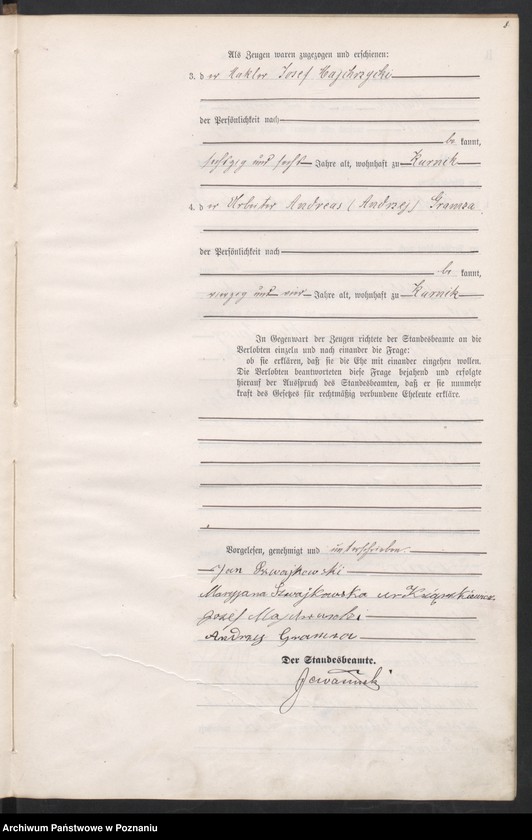 Als Zeugen waren zugezogen und erschienen:
3. der Makler Josef
der Persönlichkeit nach
be kannt,
sechzig und sechs Jahre alt, wohnhaft zu Kurnik
4. der Arbeiter Andreas (Andrzej) Gramza
der Persönlichkeit nach
be kannt,
vierzig und vier Jahre alt, wohnhaft zu Kurnik
In Gegenwart der Zeugen richtete der Standesbeamte an die
Verlobten einzeln und nach einander die Frage:
ob sie erklären, daß sie die Ehe mit einander eingehen wollen.
Die Verlobten beantworteten diese Frage bejahend und erfolgte
hierauf der Ausspruch des Standesbeamten, daß er sie nunmehr
kraft des Gesetzes für rechtmäßig verbundene Eheleute erkläre.
Vorgelesen, genehmigt und unterschrieben
Jan Szwajkowski
Maryjana Szwajkowska
Jozef
Andrzej Gramza
Der Standesbeamte.
Archiwum Państwowe w Poznaniu